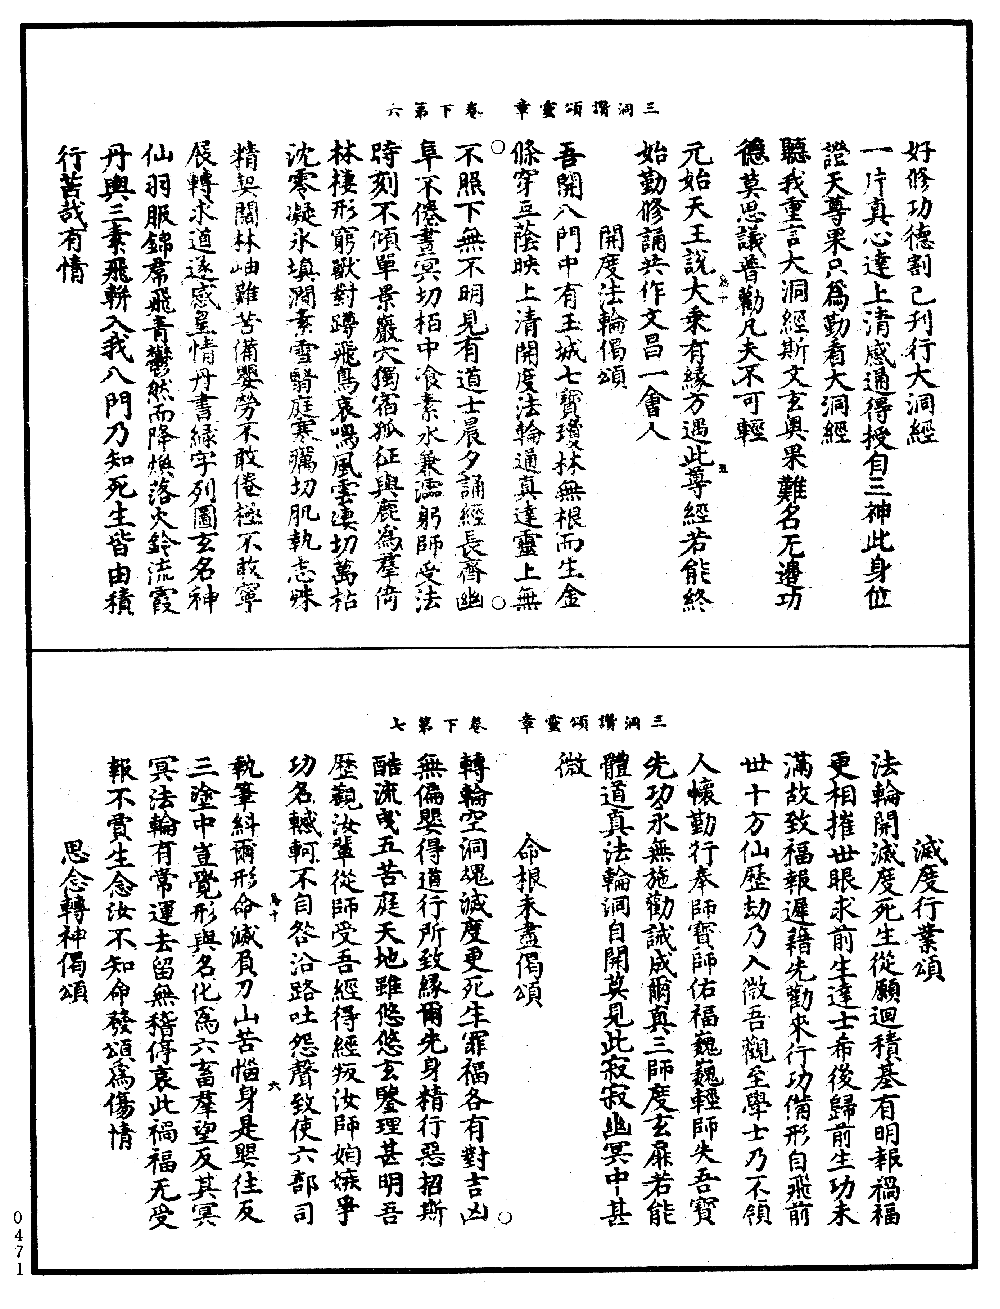 三洞讚頌靈章　卷下第六
好修功德割己刋行大洞經
一片真心達上清感通得授自三神此身位
證天尊果只爲勤看大洞經
聽我重言大洞經斯文玄奥果難名无邉功
德莫思議普勸凡夫不可輕
元始天王說大乗有緣方遇此尊經若能終
始勤修誦共作文昌一會人
開度法輪偈頌
吾開八門中有玉城七寳瓊林無根而生金
條穿互蔭映上清開度法輪通真達靈上無
不照下無不明見有道士晨夕誦經長齋幽
阜不倦晝冥切栢中飡素水兼濡躬師受法
時刻不傾單景巖穴獨宿孤征與鹿爲羣倚
林棲形窮獸對蹲飛鳥哀鳴風雲凄切萬枯
沈零凝氷塡澗素雪翳庭寒癘切肌執志殊
精契闊林岫難苦備嬰勞不敢倦極不敢寧
展轉求道遂感皇情丹書緑字列圖玄名神
仙羽服錦帬飛青鬱然而降煥落火鈴流霞
丹輿三素飛軿入我八門乃知死生皆由積
行苦哉有情
三洞讚頌靈章　卷下第七
滅度行業頌
法輪開滅度死生從願迴積基有明報禍福
更相摧世眼求前生達士希後歸前生功未
滿故致福報遲藉先勸來行功備形自飛前
世十方仙歷劫乃入微吾觀至學士乃不領
人懷勤行奉師寳師佑福巍巍輕師失吾寳
先功永無施勸誡成爾真三師度玄扉若能
體道真法輪洞自開莫見此寂寂幽冥中甚
微
命根未盡偈頌
轉輪空洞魂滅度更死生罪福各有對吉凶
無偏嬰得道行所致緣爾先身精行惡招斯
酷流曵五苦庭天地雖悠悠玄鑒理甚明吾
歷觀汝輩從師受吾經得經叛汝師姻嫉爭
功名轗軻不自咎沿路吐怨聲致使六部司
執筆糾爾形命滅負刀山苦惱身是興往反
三塗中豈覺形與名化爲六畜羣望反其冥
冥法輪有常運去留無稽停哀此禍福无受
報不貰生念汝不知命發頌爲傷情
思念轉神偈頌
0471